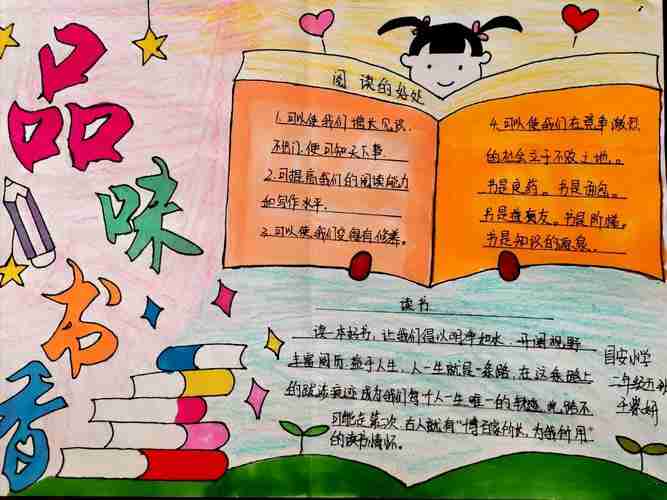 品味书香
阅读的好处
1.可以使我们增长见识.
不出门.便可知天下事.
2.可提高我们的阅读能力
和写作水平.
3.可以使我们变得有修养。
4.可以使我们在竞争激烈
的社会立于不败土地。。
书是良药。书是面包。
书是挚友。书是阶梯。
书是知识的源泉.
读书
读一本好书，让我们得以明净如水，开阔视野
丰富阅历.益于人生，人一生就是一条路，在这条路上
的跋涉痕迹成为我们每个人一生唯一的轨迹，此路不
可能走第二次，古人就有“博百家所长，为我所用”
的读书情怀.
目安小学
二年级五班